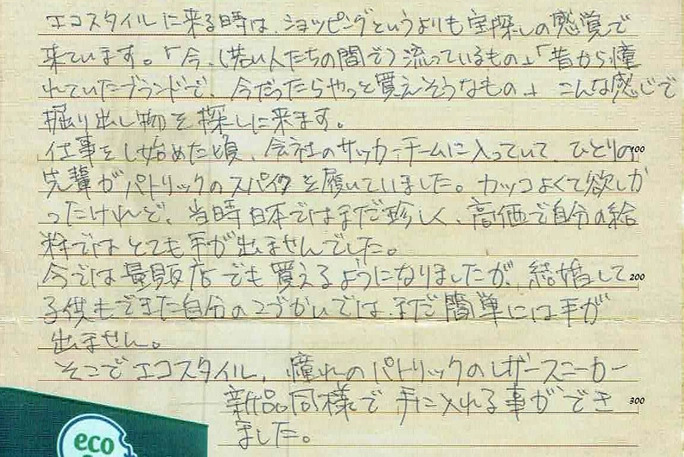 エコスタイルに来る時は、ショッピングというよりも宝探しの感覚で
来ています。「今、(若い人たちの間で)流っているもの」「昔から憧
れていたブランドで、今だったらやっと買えそうなもの」こんな感じで
掘り出し物を探しに来ます。
仕事をし始めた頃、会社のサッカーチームに入っていて、ひとりの
100
先輩がパトリックのスパイクを履いていました。カッコよくて欲しか
ったけれど、当時日本ではまだ珍しく、高価で自分の給
料ではとても手が出ませんでした。
今では量販店でも買えるようになりましたが、結婚して
200
子供もできた自分のこづかいでは、まだ簡単には手が
出ません。
そこでエコスタイル、憧れのパトリックのレザースニーカー
新品同様で手に入れる事ができ
300
ました。
eco